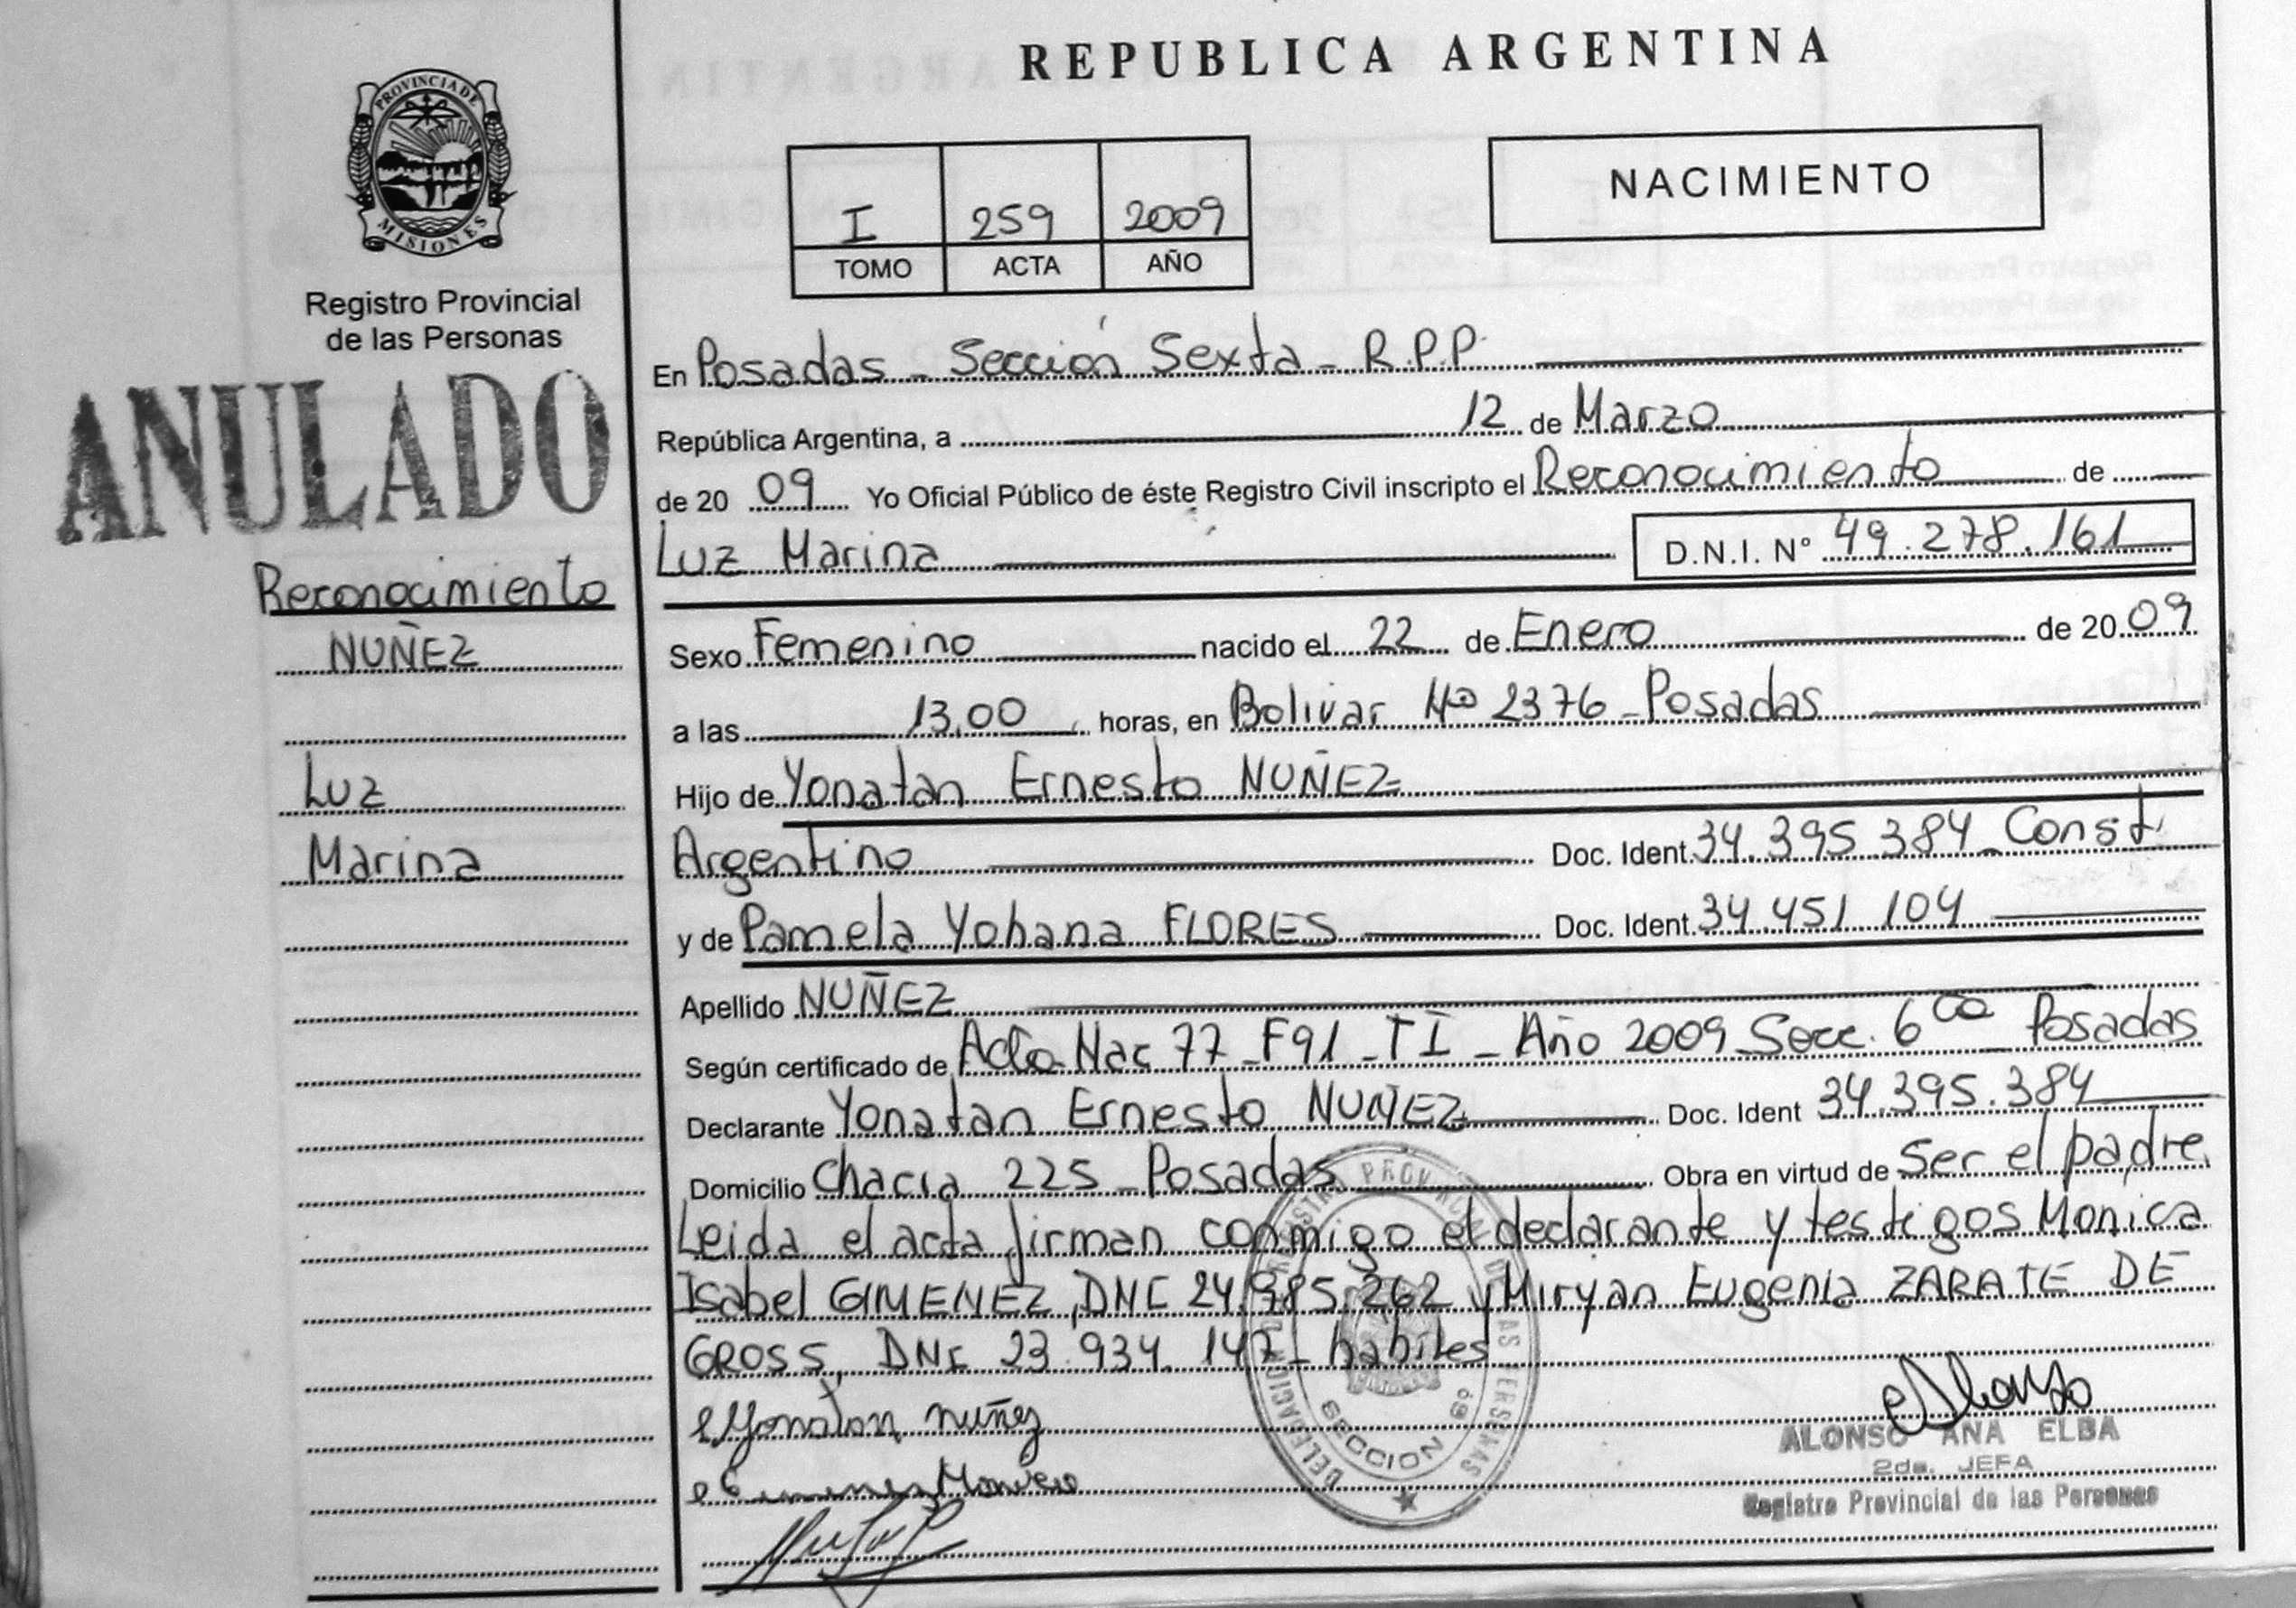 REPUBLICA ARGENTINA
PROVINCIA DE
MISIONES
Registro Provincial
de las Personas
ANULADO
Reconocimiento
NUÑEZ
Luz
Marina
I 259 2009
TOMO ACTA AÑO
NACIMIENTO
En Posadas - Sección Sexta - R.P.P.
República Argentina, a 12 de Marzo
de 20 09 Yo Oficial Público de éste Registro Civil inscripto el Reconocimiento de
Luz Marina D.N.I. N° 49.278.161
Sexo Femenino nacido el 22 de Enero de 20 09
a las 13,00 horas, en Bolivar Nº 2376 - Posadas
Hijo de Yonatan Ernesto NUÑEZ
Argentino Doc. Ident. 34.395.384 - Const.
y de Pamela Yohana FLORES Doc. Ident. 34.451.104
Apellido NUÑEZ
Según certificado de Acta Nac 77 - F91 - TI - Año 2009 Secc. 6ta - Posadas
Declarante Yonatan Ernesto NUÑEZ Doc. Ident 34.395.384
Domicilio Chacra 225 - Posadas Obra en virtud de Ser el padre.
Leida el acta firman conmigo el declarante y testigos Monica
Isabel GIMENEZ, DNI 24.985.262 y Miryan Eugenia ZARATE DE
GROSS, DNI 23.934.147 - habiles
Yonatan nuñez
Gimenez Monica
REGISTRO PROVINCIAL DE LAS PERSONAS
DELEGACION
SECCION 6º
Alonso
ALONSO ANA ELBA
2da. JEFA
Registro Provincial de las Personas